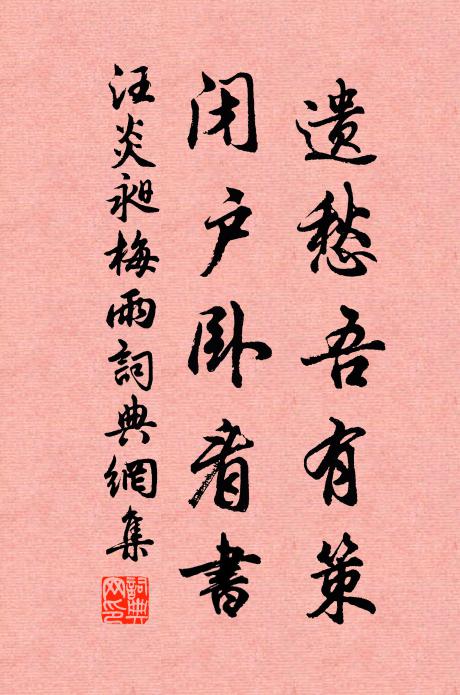 遣愁吾有策
闭户卧看書
汪炎昶梅雨詞典網集
詞典
网印